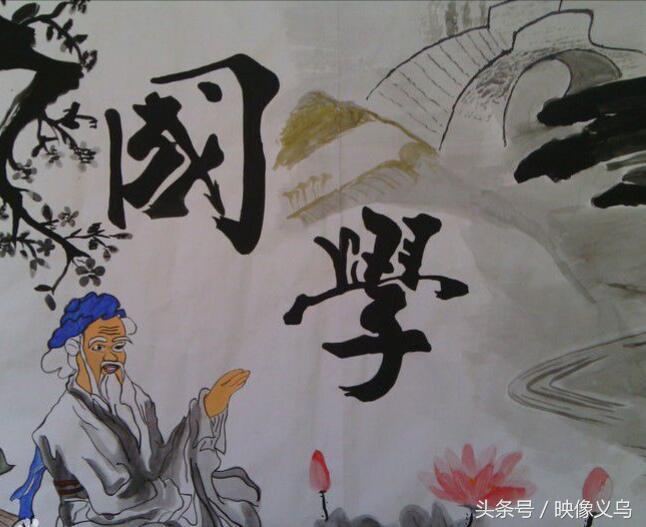 國學
头条号 / 映像义乌